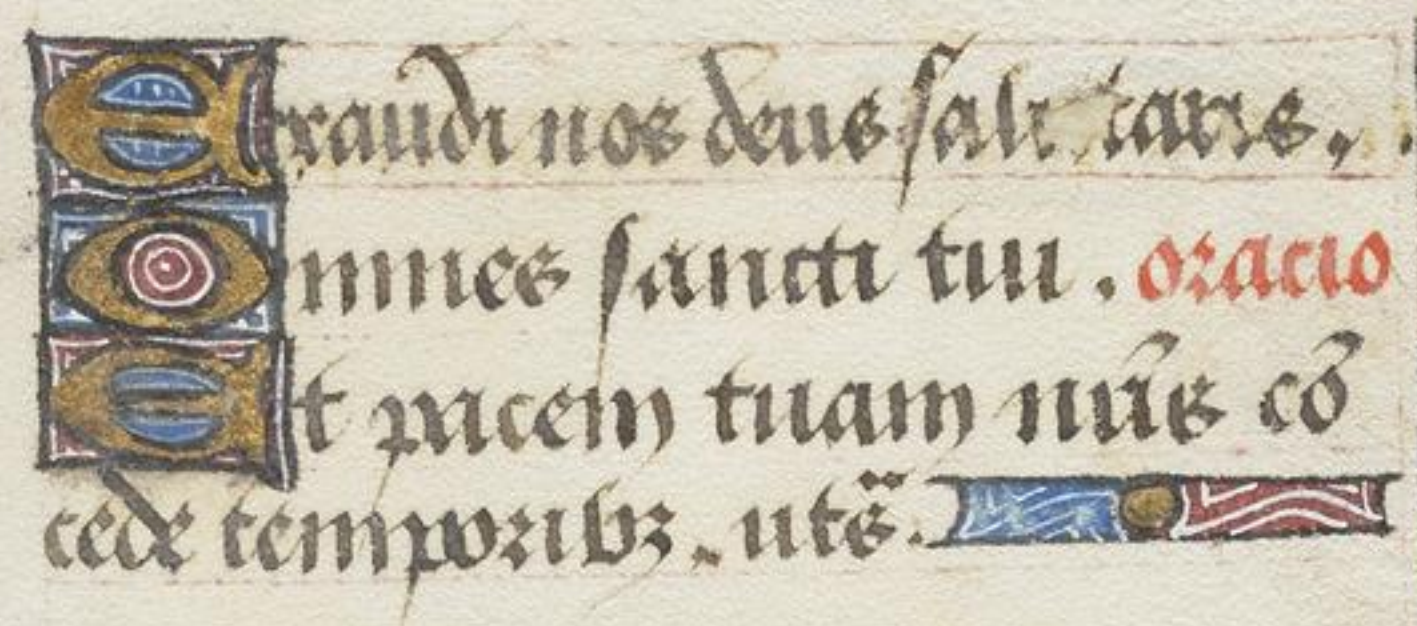 Exaudi nos deus salutaris.
Omnes sancti tui. oracio
Et pacem tuam nr̄is cō
cede temporibꝫ. uts̄.